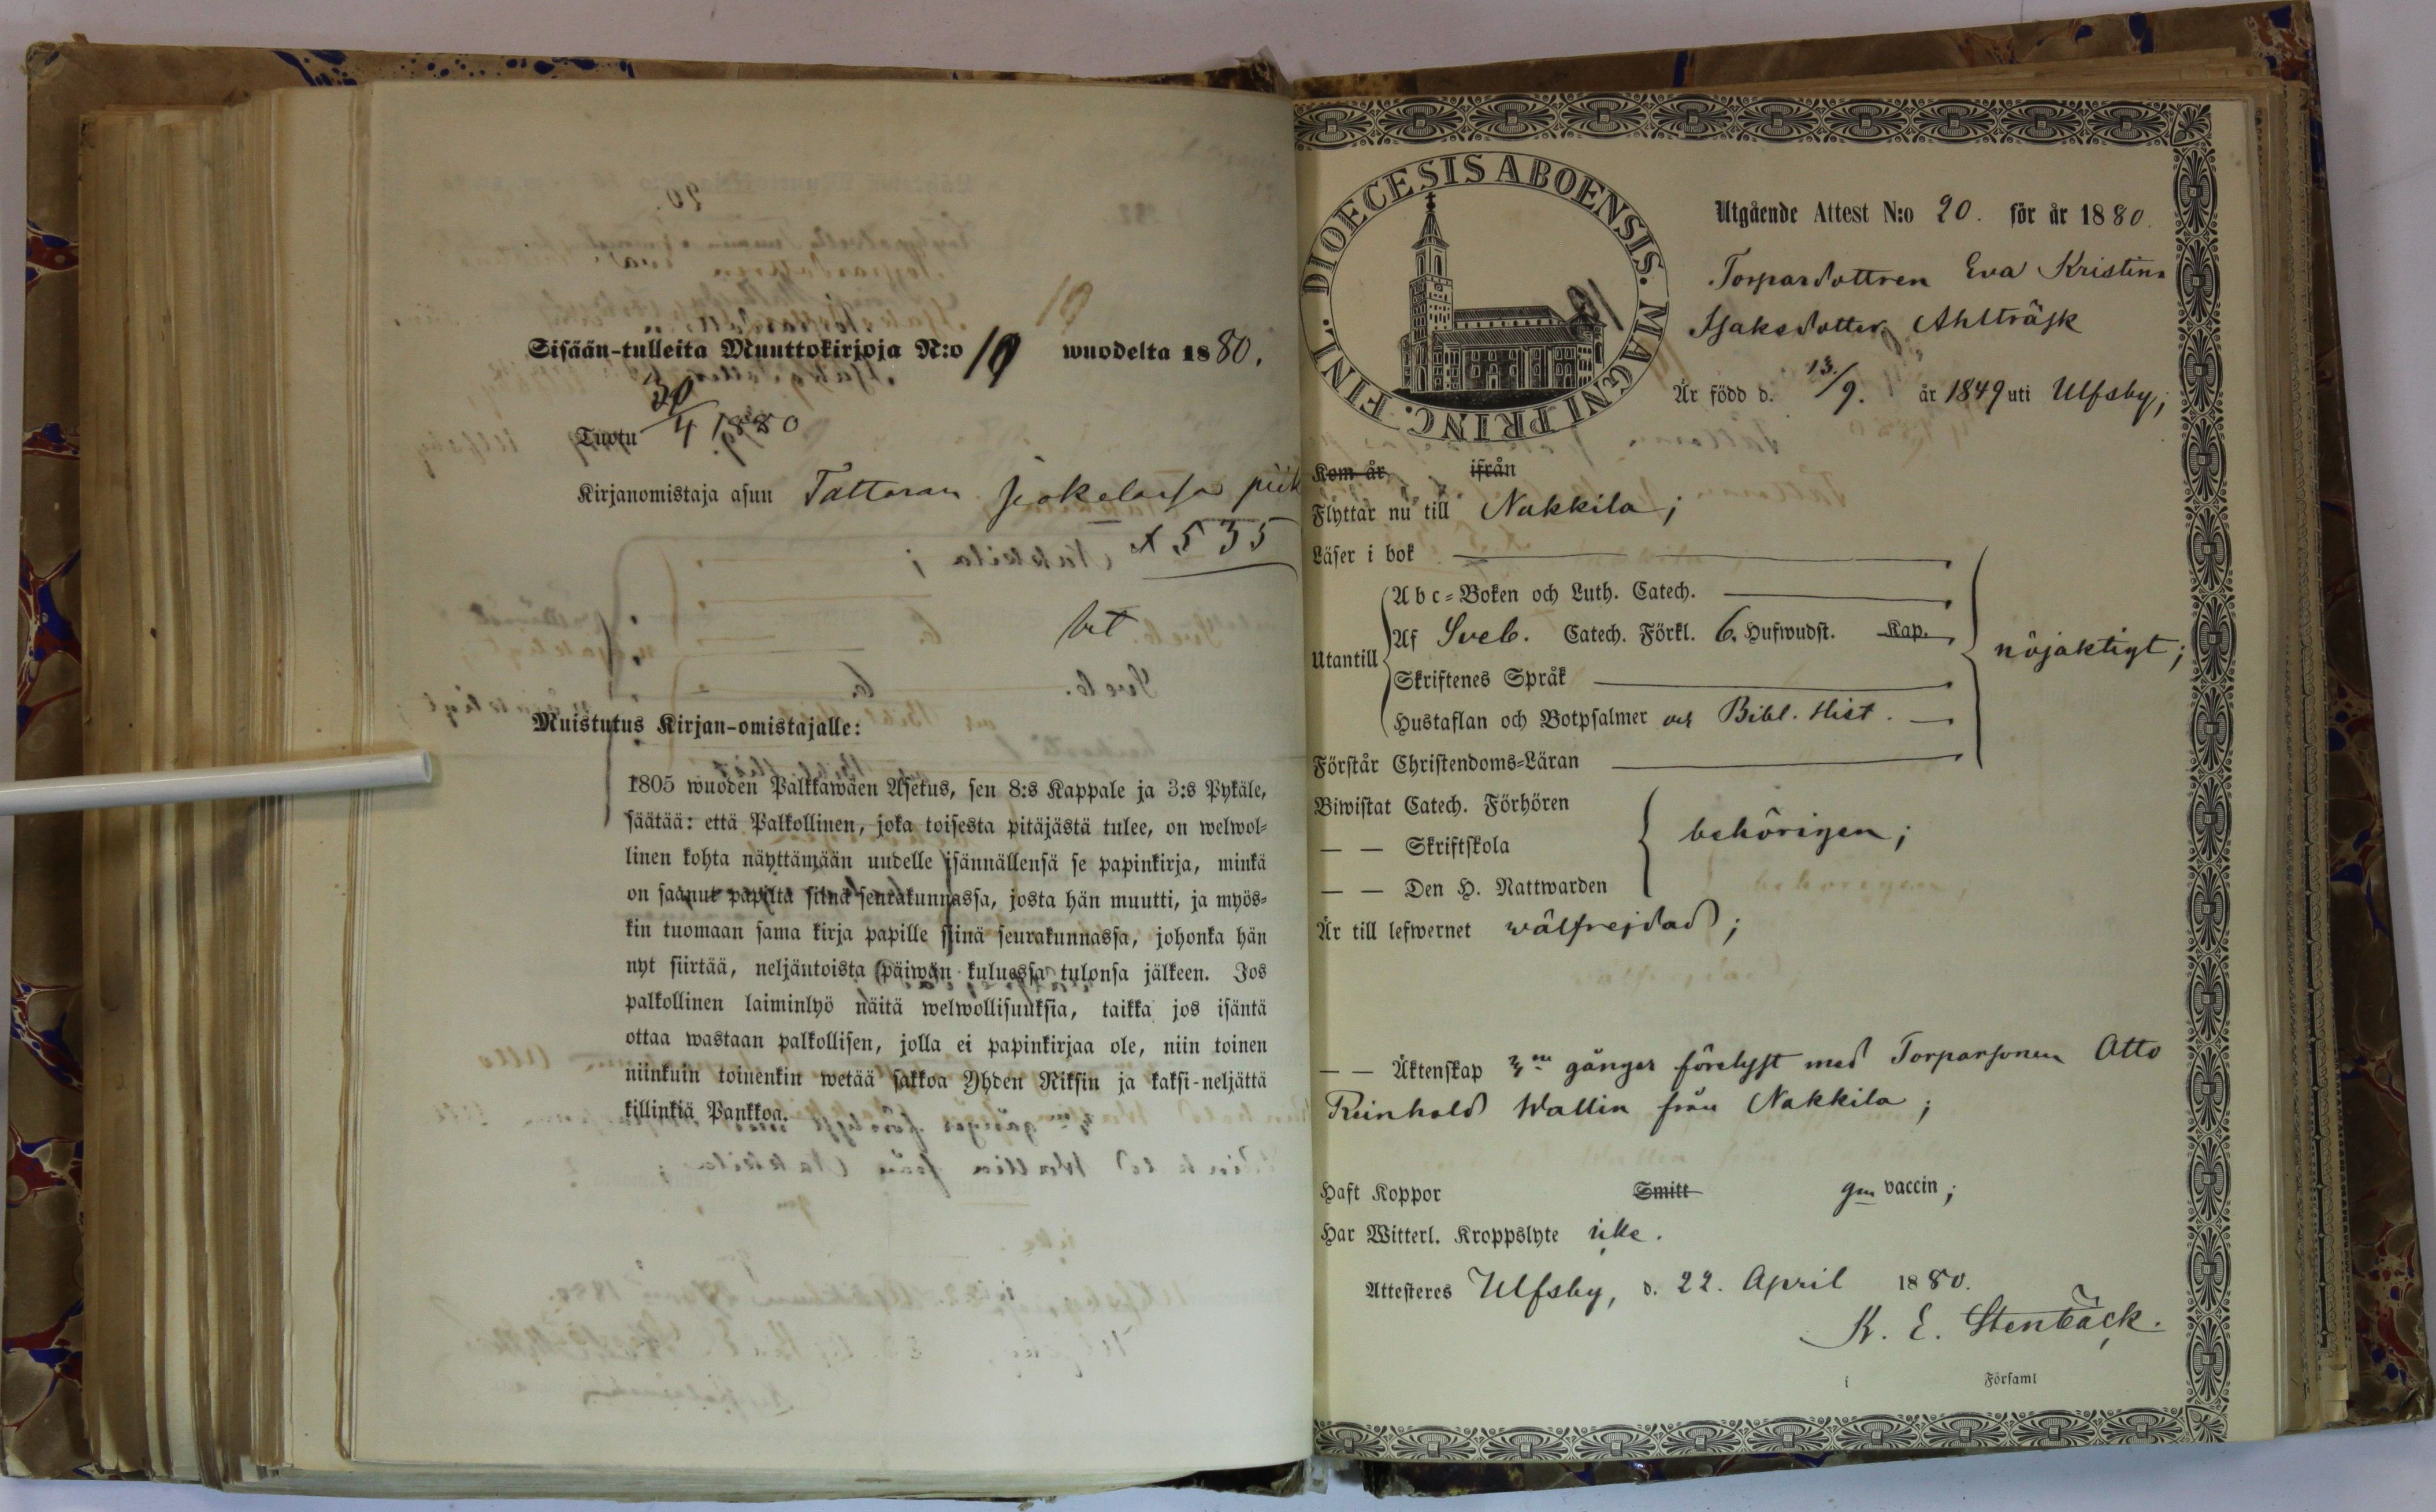 Sisään-tulleita Muuttokirjoja N:o 19 wuodelta 1880.
Tuotu 30/4 1880
Kirjanomistaja asuu Tattaran
x 535
bet
Muistutus Kirjan-omistajalle:
1805 wuoden Palkkawäen Asetus, sen 8:s Kappale ja 3:s Pykäle,
säätää: että Palkollinen, joka toisesta pitäjästä tulee, on welwol=
linen kohta näyttämään uudelle isännällensä se papinkirja, minkä
on saanut papilta siinä seurakunnassa, josta hän muutti, ja myös=
kin tuomaan sama kirja papille siinä seurakunnassa, johonka hän
nyt siirtää, neljäntoista päiwän kuluessa tulonsa jälkeen. Jos
palkollinen laiminlyö näitä welwollisuuksia, taikka jos isäntä
ottaa wastaan palkollisen, jolla ei papinkirjaa ole, niin toinen
niinkuin toinenkin wetää sakkoa Yhden Riksin ja kaksi-neljättä
killinkiä Pankkoa.
DIOECESIS ABOENSIS. MAGNI PRINC. FINL.
Utgående Attest N:o 20. för år 1880.
Torpardottren Eva Kristina
Isaksdotter Ahlträsk
Är född d. 13/9. år 1849 uti Ulfsby;
Kom år ifrån
Flyttar nu till Nakkila;
Läser i bok
Abc=Boken och Luth. Catech.
Utantill
Af Sveb. Catech. Förkl. 6. Hufwudst. Kap.
Skriftenes Språk
Hustaflan och Botpsalmer och Bibl. Hist.
nöjaktigt;
Förstår Christendoms=Läran
Biwistat Catech. Förhören
— — Skriftskola
behörigen;
— — Den H. Nattwarden
Är till lefwernet wälfrejdad;
— — Äktenskap 3ne gånger förelyst med Torparsonen Otto
Reinhold Wallin från Nakkila;
Haft Koppor Smitt gm vaccin;
Har Witterl. Kroppslyte icke.
Attesteres Ulfsby, d. 22. April 1880.
K. E. Stenbäck.
i Församl